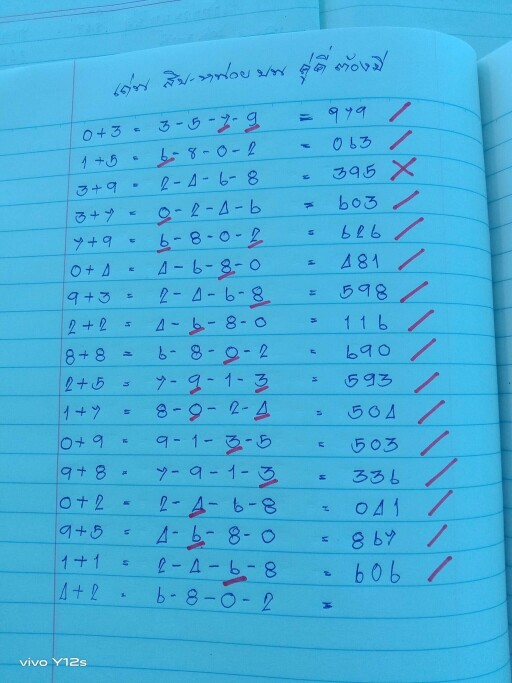 เด่น สิบ-หน่วย บน คู่คี่ ต้องมี
0+3 = 3-5-7-9 = 979
1+5 = 6-8-0-2 = 063
3+9 = 2-4-6-8 = 395
3+7 = 0-2-4-6 = 603
7+9 = 6-8-0-2 = 626
0+4 = 4-6-8-0 = 481
9+3 = 2-4-6-8 = 598
2+2 = 4-6-8-0 = 116
8+8 = 6-8-0-2 = 690
2+5 = 7-9-1-3 = 593
1+7 = 8-0-2-4 = 504
0+9 = 9-1-3-5 = 503
9+8 = 7-9-1-3 = 336
0+2 = 2-4-6-8 = 041
9+5 = 4-6-8-0 = 867
1+1 = 2-4-6-8 = 606
4+2 = 6-8-0-2 =
vivo Y12s